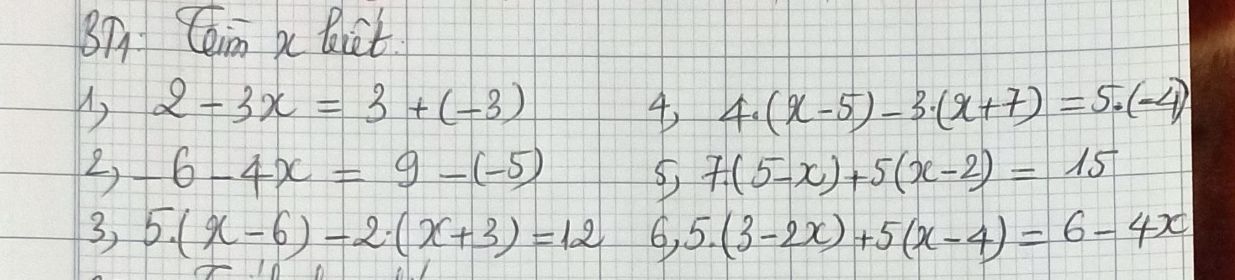 BT1: Tìm x biết.
1, 2 - 3x = 3 + (-3) 4, 4.(x-5) - 3.(x+7) = 5.(-4)
2, -6 - 4x = 9 - (-5) 5, 7.(5-x)+5(x-2) = 15
3, 5.(x-6) - 2.(x+3) = 12 6, 5.(3-2x)+5(x-4) = 6 - 4x